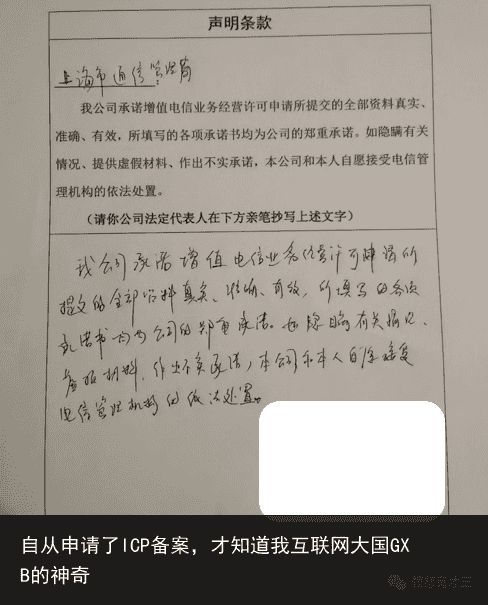 声明条款
上海市通信管理局
我公司承诺增值电信业务经营许可申请所提交的全部资料真实、
准确、有效，所填写的各项承诺书均为公司的郑重承诺。如隐瞒有关
情况、提供虚假材料、作出不实承诺，本公司和本人自愿接受电信管
理机构的依法处置。
（请你公司法定代表人在下方亲笔抄写上述文字）
我公司承诺增值电信业务经营许可申请所
提交的全部资料真实、准确、有效，所填写的各项
承诺书均为公司的郑重承诺。如隐瞒有关情况、
虚假材料、作出不实承诺，本公司和本人自愿接受
电信管理机构的依法处置。
自从申请了ICP备案，才知道我互联网大国GX
B的神奇